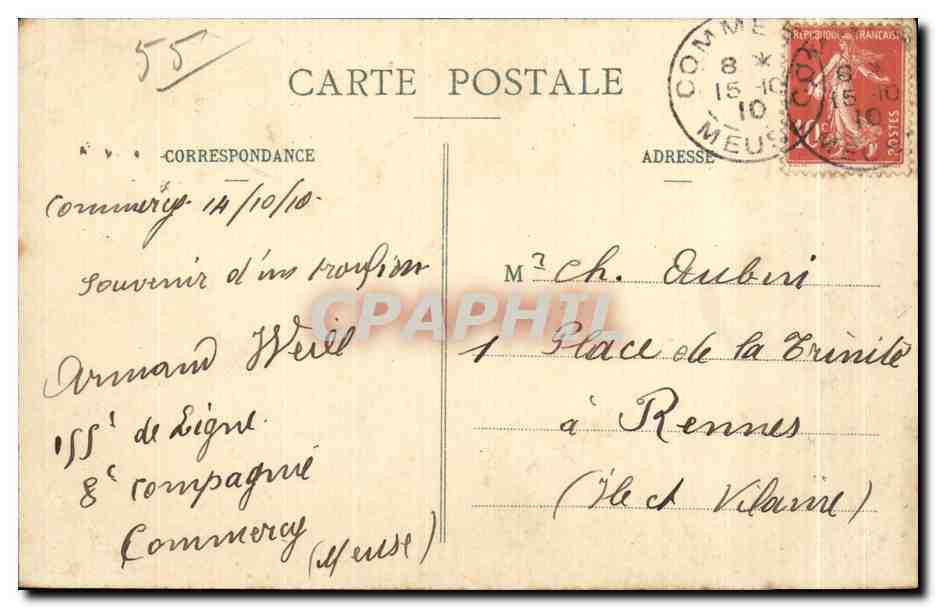 55
CARTE POSTALE
COMMERCY
8 *
15 -10
10
MEUSE
RÉPUBLIQUE FRANÇAISE
10c
POSTES
8 *
15 -10
10
CORRESPONDANCE
ADRESSE
Commercy 14/10/10.
Souvenir d'un troufion
Armand Weill
155e de Ligne.
8e Compagnie
Commercy
(Meuse)
Mr Ch. Aubin
1 Place de la Trinité
à Rennes
(Ile et Vilaine)
CPAPHIL